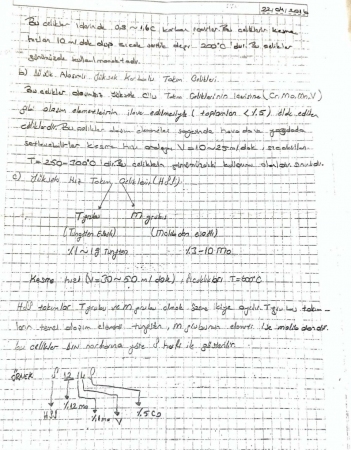 Bu çelikler içlerinde 0.8 ~ 1.6C karbon içerirler. Bu çeliklerin kesme
hızları 10 m/dak olup sıcak sertlik değeri 200°C 'dur. Bu çelikler
günümüzde kullanılmamaktadır.
b) Düşük Alaşımlı Yüksek Karbonlu Takım Çelikleri.
Bu çelikler alaşımsız Takım Çeliklerinin içerisine (Cr, Mo, Mn, V)
gibi alaşım elementlerinin ilave edilmesiyle (toplamları < %5) elde edilen
çeliklerdir. Bu çelikler alaşım elementler sayesinde havada ve yağda
sertleşebilirler kesme hızı aralığı V=10~25m/dak, sıcaklıkları
T= 250-300°C dir. Bu çeliklerin günümüzdeki kullanım alanları sınırlıdır.
c) Yüksek Hız Takım Çelikleri (HSS)
T grubu M grubu
(Tungsten Esaslı) (Molibden esaslı)
%1-19 Tungsten %3-10 Mo
Kesme hızı (V=30~50 m/dak), Sıcaklıkları T=600°C
HSS takımlar T grubu ve M grubu olmak üzere ikiye ayrılır. T grubu takım-
ların temel alaşım elementi tungsten, M grubunun elementi ise molibdendir.
bu çelikler din normuna göre S harfi ile gösterilir.
ÖRNEK S 12 1 4 5
HSS %12 mo %1 mo V %5 Co